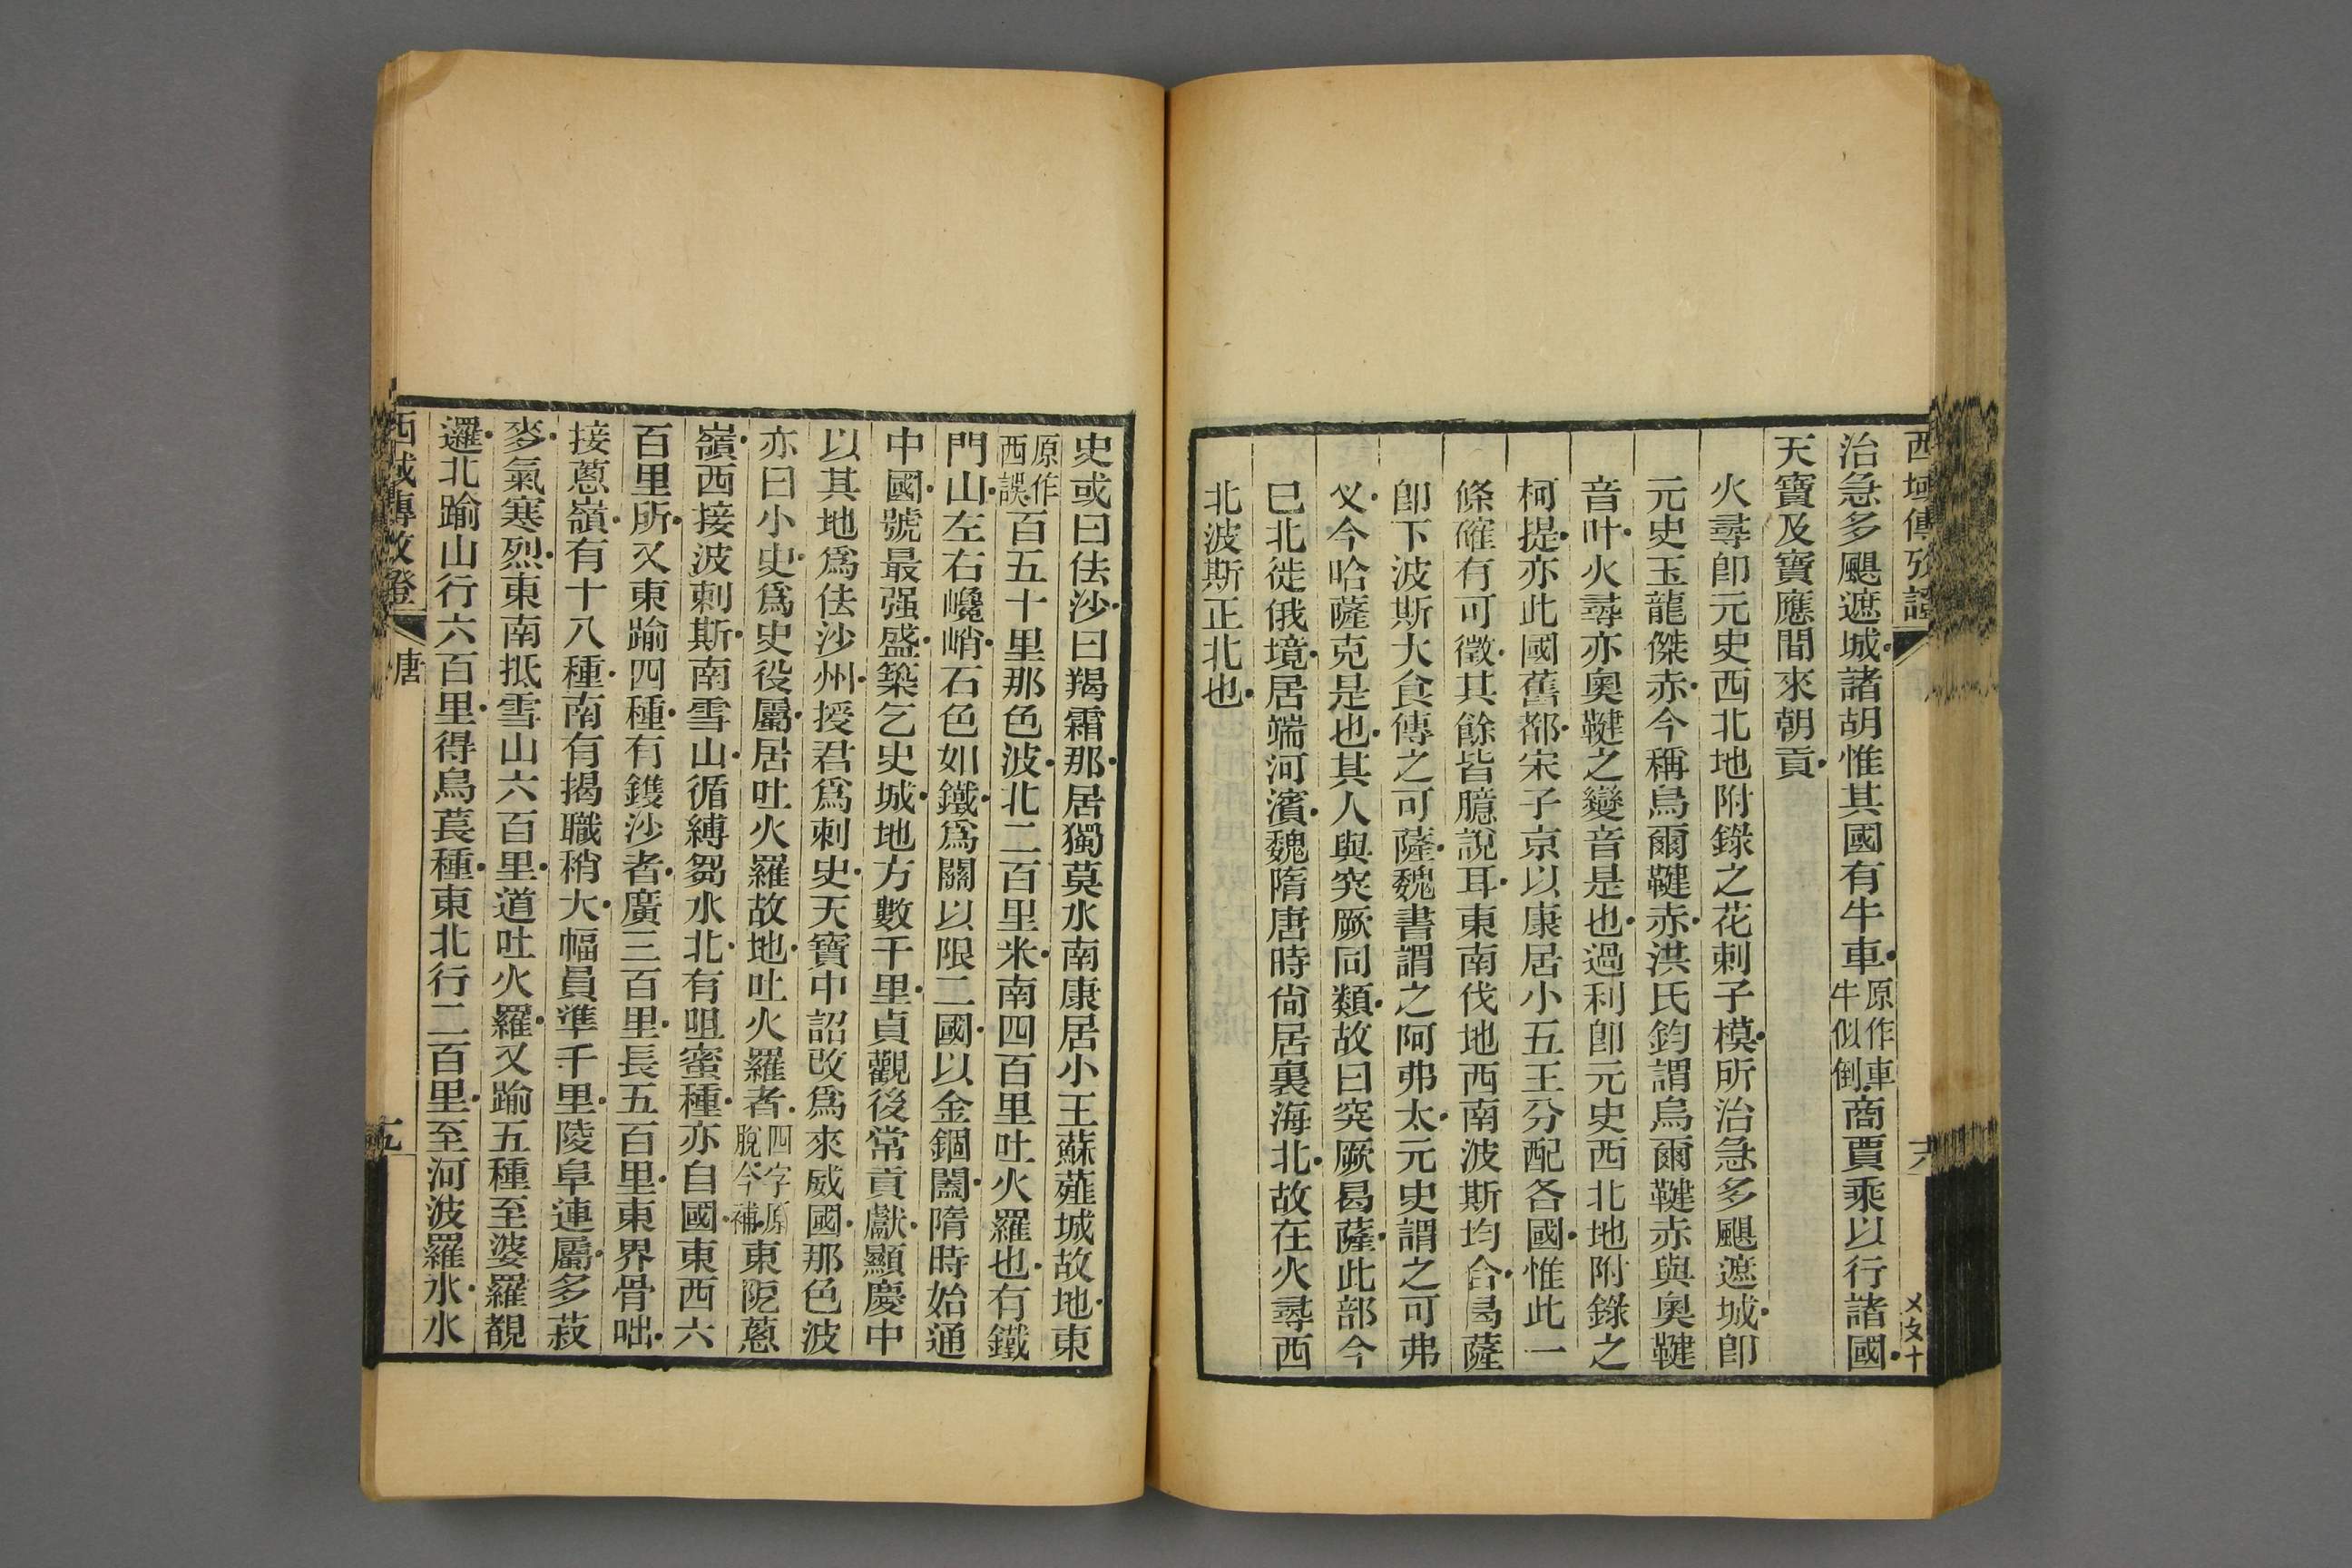 西域傳攷證
六
治急多颶遮城諸胡惟其國有牛車原作車牛似倒商賈乘以行諸國
天寶及寶應間來朝貢
火尋卽元史西北地附錄之花剌子模所治急多颶遮城卽
元史玉龍傑赤今稱烏爾鞬赤洪氏鈞謂烏爾鞬赤與奧鞬
音叶火尋亦奧鞬之變音是也過利卽元史西北地附錄之
柯提亦此國舊都宋子京以康居小五王分配各國惟此一
條確有可徵其餘皆臆說耳東南伐地西南波斯均合曷薩
卽下波斯大食傳之可薩魏書謂之阿弗太元史謂之可弗
叉今哈薩克是也其人與突厥同類故曰突厥曷薩此部今
已北徙俄境居端河濱魏隋唐時尙居裏海北故在火尋西
北波斯正北也
史或曰佉沙曰羯霜那居獨莫水南康居小王蘇薤城故地東
原作西誤百五十里那色波北二百里米南四百里吐火羅也有鐵
門山左右巉峭石色如鐵爲關以限二國以金錮闔隋時始通
中國號最强盛築乞史城地方數千里貞觀後常貢獻顯慶中
以其地爲佉沙州授君爲刺史天寶中詔改爲來威國那色波
亦曰小史爲史役屬居吐火羅故地吐火羅者四字原脫今補東阨蔥
嶺西接波剌斯南雪山循縛芻水北有咀蜜種亦自國東西六
百里所又東踰四種有鑊沙者廣三百里長五百里東界骨咄
接蔥嶺有十八種南有揭職稍大幅員準千里陵阜連屬多菽
麥氣寒烈東南抵雪山六百里道吐火羅又踰五種至婆羅覩
邏北踰山行六百里得烏萇種東北行二百里至河波羅水水
西域傳攷證
唐
五